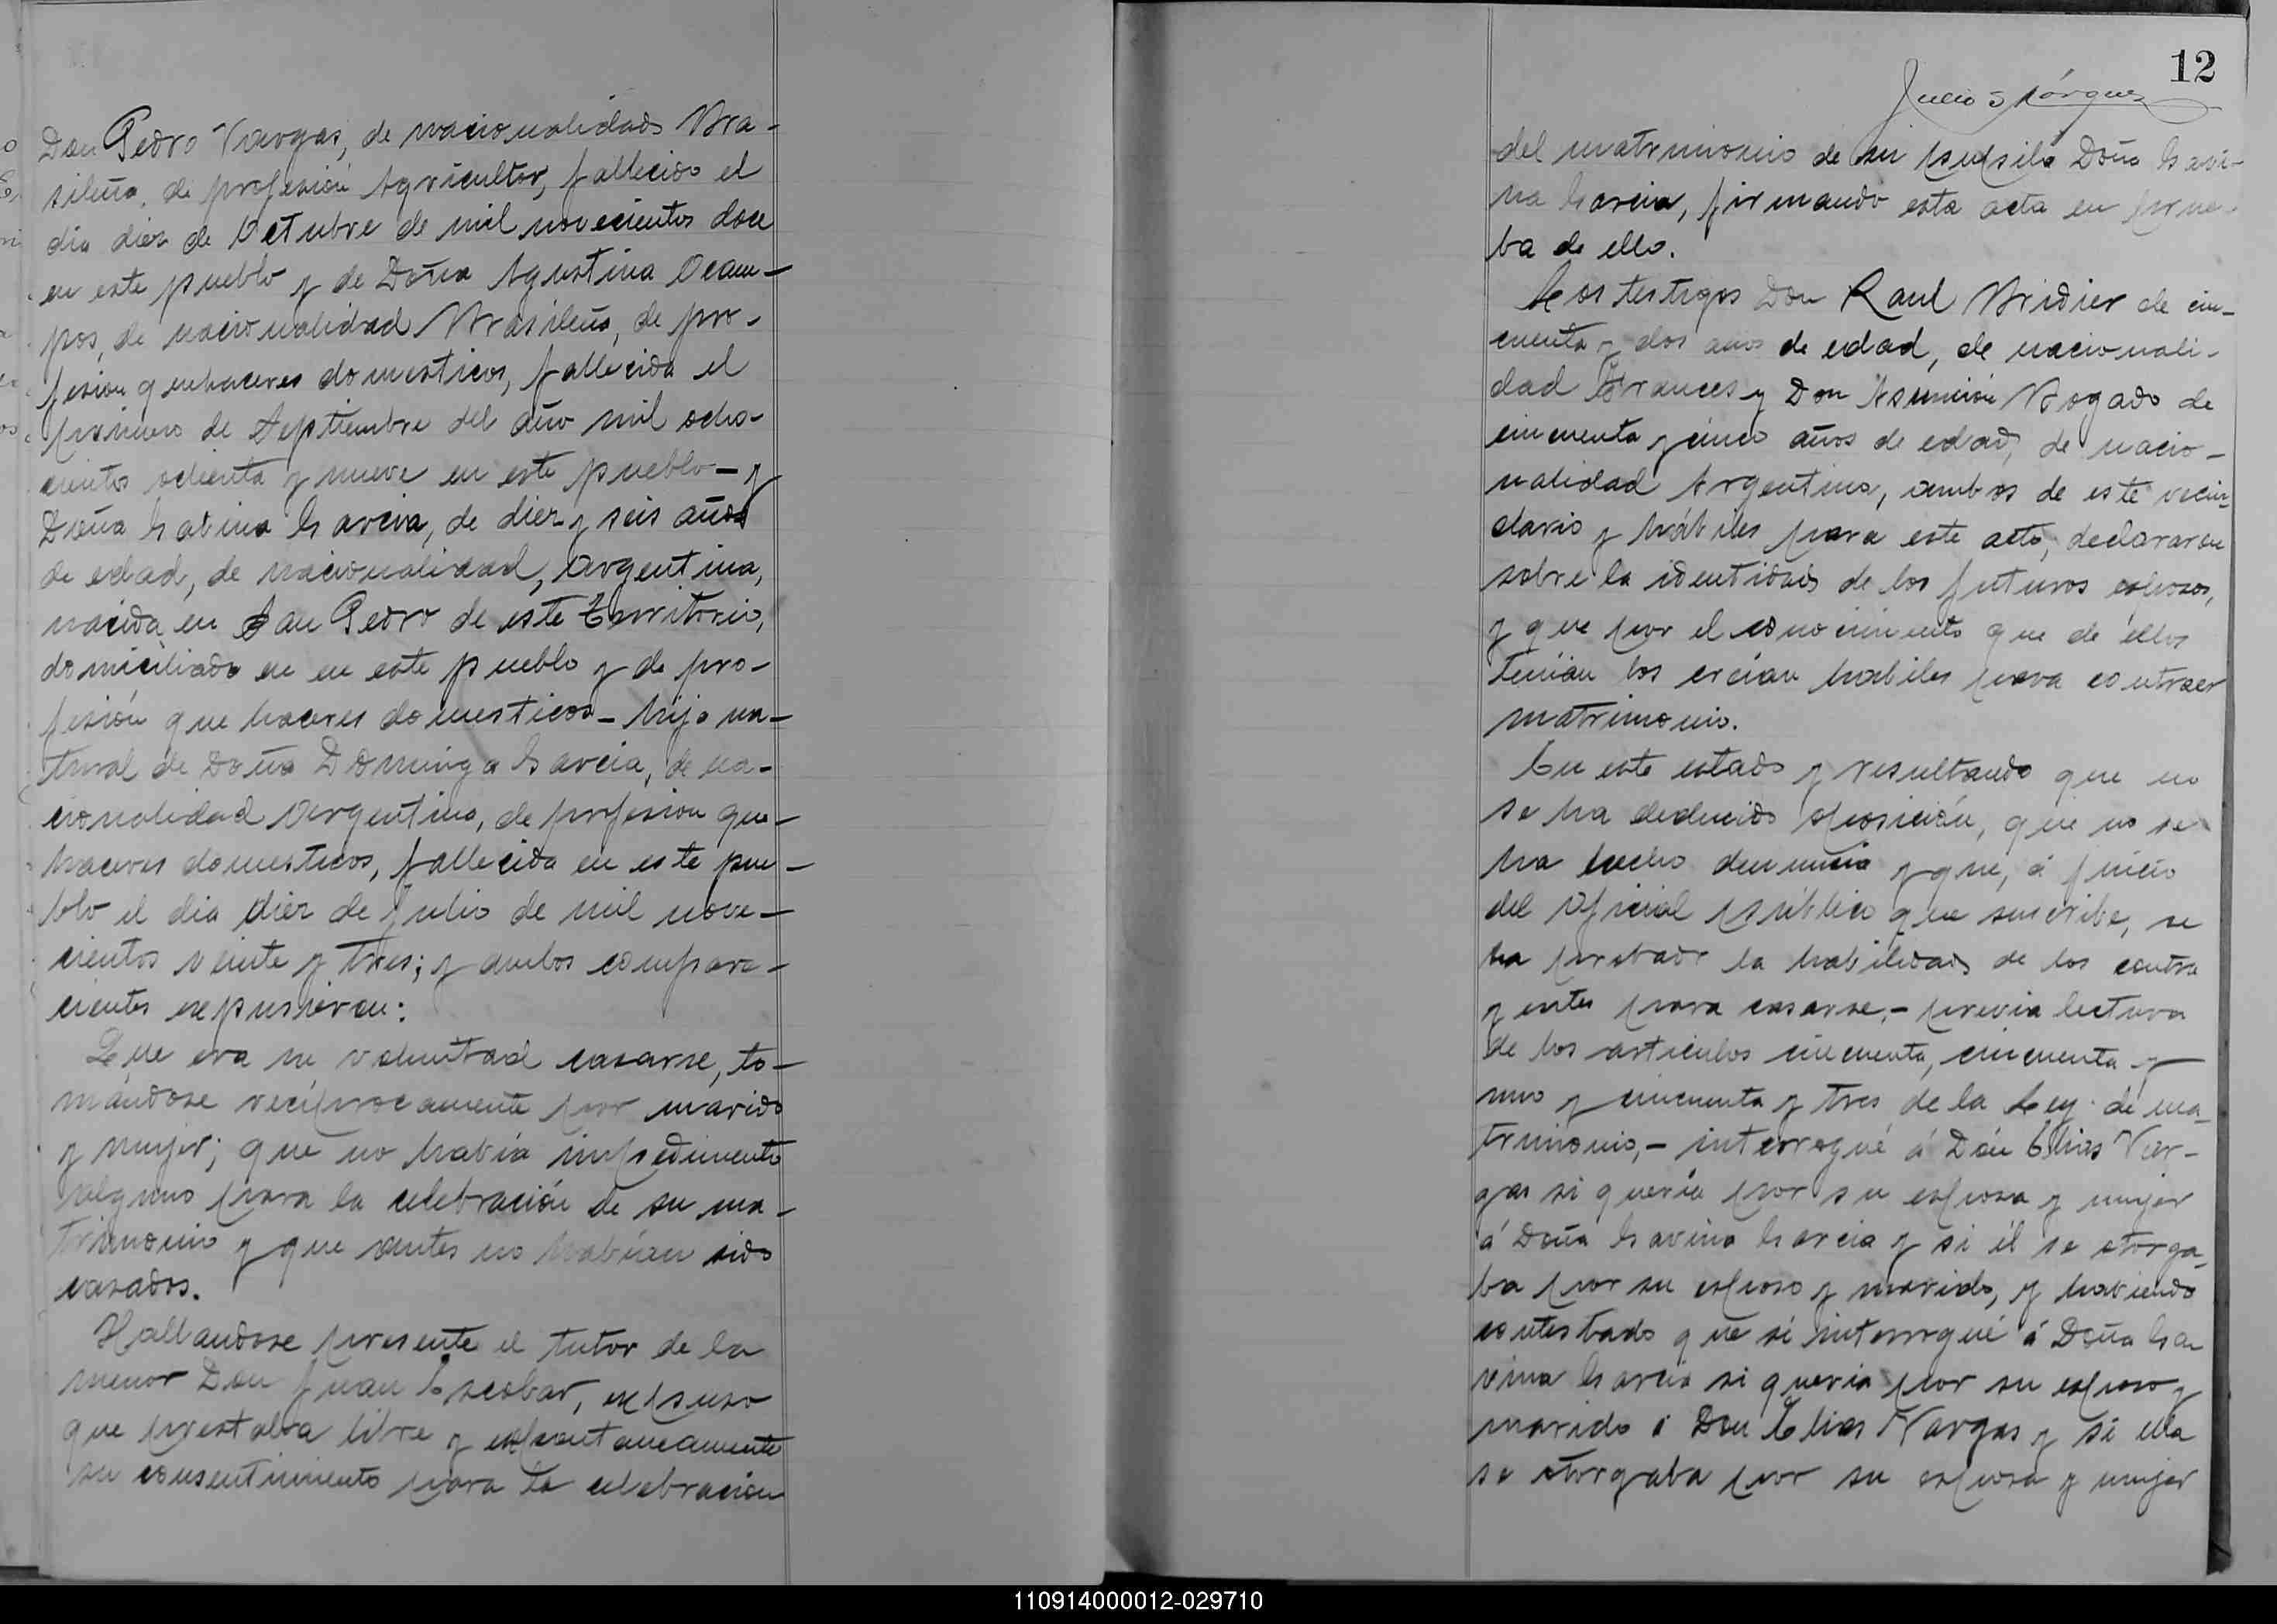 Don Pedro Vargas, de nacionalidad Bra-
sileña, de profesión Agricultor, fallecido el
dia diez de Octubre de mil novecientos doce
en este pueblo y de Doña Agustina Ocam-
pos, de nacionalidad Brasileña, de pro-
fesion quehaceres domesticos, fallecida el
primero de Septiembre del año mil ocho-
cientos ochenta y nueve en este pueblo - y
Doña Gabina Garcia, de diez y seis años
de edad, de nacionalidad, Argentina,
nacida en San Pedro de este Territorio,
domiciliado en en este pueblo y de pro-
fesión que haceres domesticos - hija na-
tural de Doña Dominga Garcia, de na-
cionalidad Argentina, de profesion que-
haceres domesticos, fallecida en este pue-
blo el dia diez de Julio de mil nove-
cientos veinte y tres; y ambos compare-
cientes expusieron:
Que era su voluntad casarse, to-
mándose recíprocamente por marido
y mujer; que no había impedimento
alguno para la celebración de su ma-
trimonio y que antes no habían sido
casados.
Hallandose presente el tutor de la
menor Don Juan Escobar, expuso
que prestaba libre y espontaneamente
su consentimiento para la celebracion
12
del matrimonio de su pupila Doña Gavi-
na Garcia, firmando esta acta en prue-
ba de ello.
Los testigos Don Raul Bridier de cin-
cuenta y dos anos de edad, de nacionali-
dad Frances y Don Asunción Bogado de
cincuenta y cinco años de edad, de nacio-
nalidad Argentina, ambos de este vecin-
dario y hábiles para este acto, declararon
sobre la identidad de los futuros esposos,
y que por el conocimiento que de ellos
tenían los creían habiles para contraer
matrimonio.
En este estado y resultando que no
se ha deducido oposición, que no se
ha hecho denuncia y que, á juicio
del Oficial público que suscribe, se
ha probado la habilidad de los contra
yentes para casarse,- previa lectura
de los articulos cincuenta, cincuenta y
uno y cincuenta y tres de la Ley de ma-
trimonio,- interrogué á Don Elias Var-
gas si quería por su esposa y mujer
á Doña Gavina Garcia y si él se otorga-
ba por su esposo y marido, y habiendo
contestado que sí interrogué á Doña Ga
vina Garcia si queria por su esposo y
marido á Don Elias Vargas y si ella
se otorgaba por su esposa y mujer
110914000012-029710